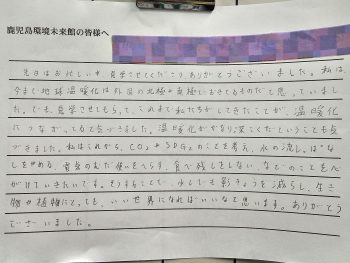 鹿児島環境未来館の皆様へ
先日はお忙しい中、見学させてくださり、ありがとうございました。私は、
今まで地球温暖化は外国の北極や南極におきてるものだと思っていまし
た。でも、見学させてもらって、これまで私たちがしてきたことが、温暖化
につながってると気づきました。温暖化がかなり深くくたということも気
づきました。私はこれから、CO₂やSDGsのことを考え、水の流しっぱな
しをやめる、電気のむだ使いをへらす、食べ残しをしない、などのことを心
がけていきたいです。そうすることで、少しでも影きょうを減らし、生き
物や植物にとっても、いい世界になればいいなと思います。ありがとう
ございました。